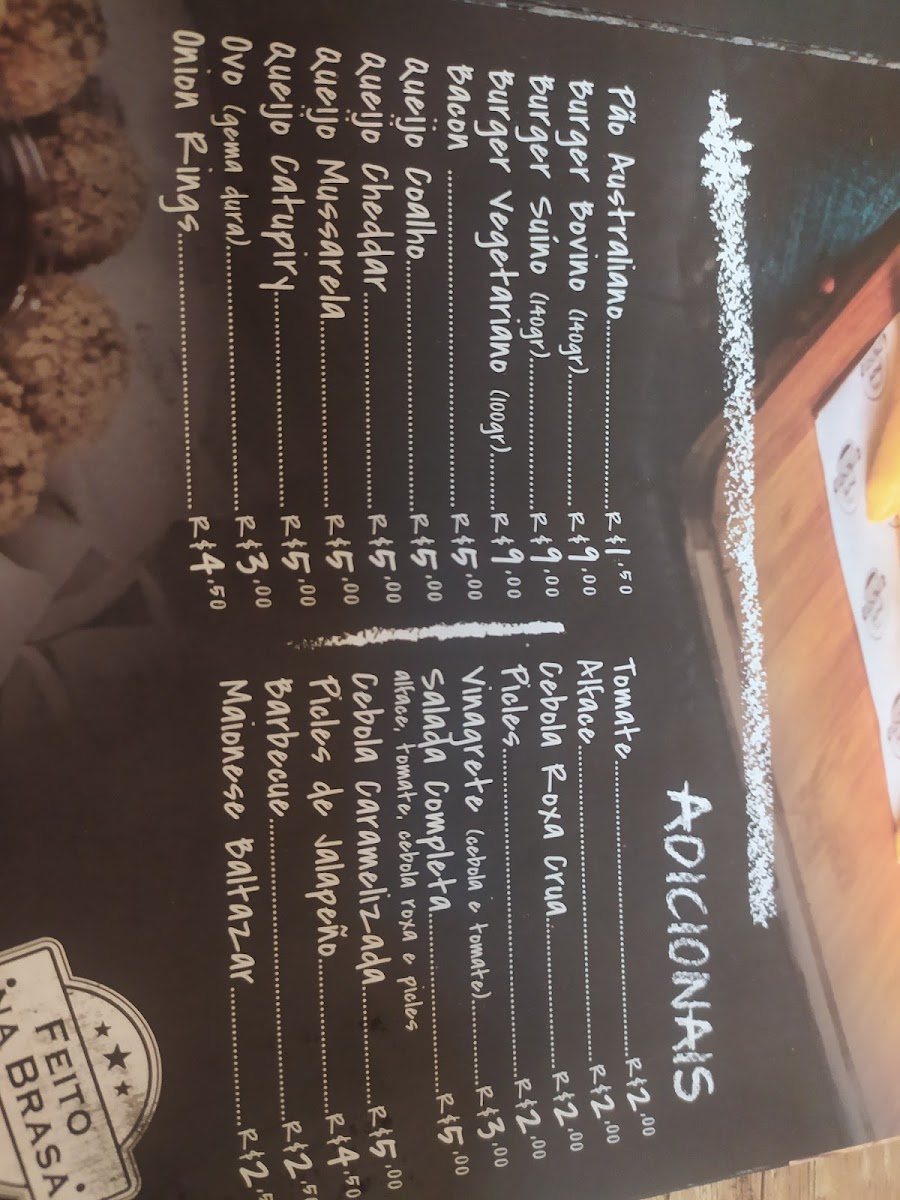 ADICIONAIS
Pão Australiano R$1,50
Burger Bovino (140gr) R$9,00
Burger Suíno (140gr) R$9,00
Burger Vegetariano (100gr) R$9,00
Bacon R$5,00
Queijo Coalho R$5,00
Queijo Cheddar R$5,00
Queijo Mussarela R$5,00
Queijo Catupiry R$5,00
Ovo (gema dura) R$3,00
Onion Rings R$4,50
Tomate R$2,00
Alface R$2,00
Cebola Roxa Crua R$2,00
Picles R$2,00
Vinagrete (cebola e tomate) R$3,00
Salada Completa R$5,00
alface, tomate, cebola roxa e picles
Cebola Caramelizada R$5,00
Picles de Jalapeño R$4,50
Barbecue R$2,50
Maionese Baltazar R$2,5
FEITO
NA BRASA